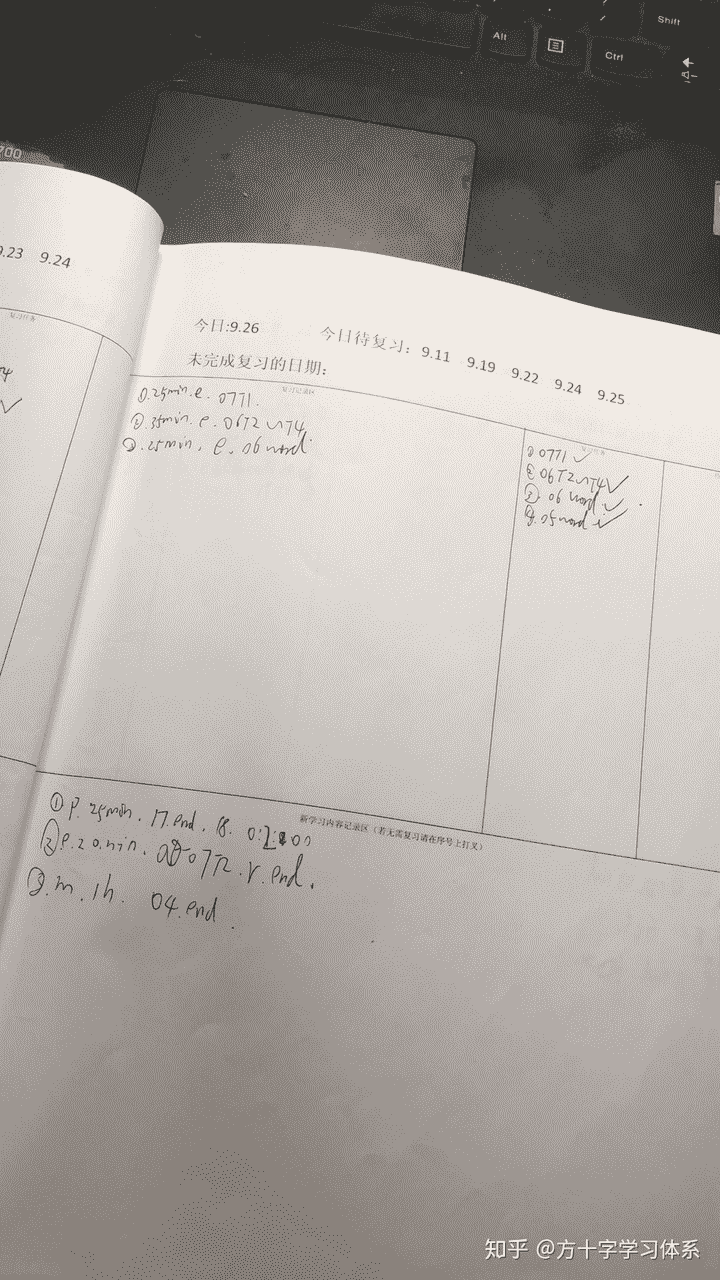 Shift
Alt
Ctrl
700
9.23 9.24
复习任务
今日:9.26 今日待复习: 9.11 9.19 9.22 9.24 9.25
未完成复习的日期:
复习记录区
①.25min.e. 0771.
②.35min.e.06T2~T4.
③.25min.e.06word
复习任务
①0771 ✓
②06T2~T4✓
③.06word ✓
④.05word ✓
新学习内容记录区(若无需复习请在序号上打叉)
①P.25min.17.end.18.
②e.20.min. 07T2.r.end.
③.m.1h. 04.end.
知乎 @方十字学习体系